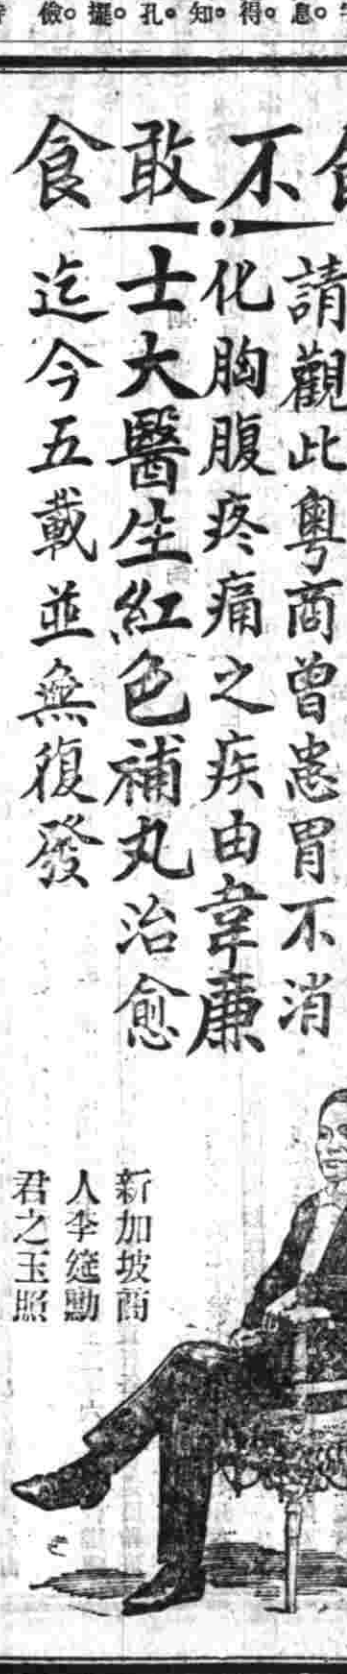 息。得。知。孔。擺。儉。
不敢食
請觀此粵商曾患胃不消
化胸腹疼痛之疾由韋廉
士大醫生紅色補丸治愈
迄今五載並無復發
新加坡商
人李筵勳
君之玉照